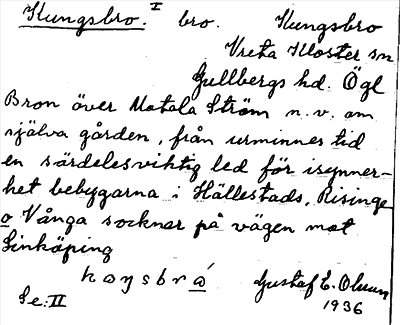 Kungsbro. I bro. Kungsbro
Vreta Kloster sn
Gullbergs hd. Ögl
Bron över Motala Ström n.v. om
själva gården, från urminnes tid
en särdeles viktig led för isynner-
het bebyggarna i Hällestads, Risinge
o Vånga socknar på vägen mot
Linköping
koŋsbró
Gustaf E. Olsson
Se: II
1936